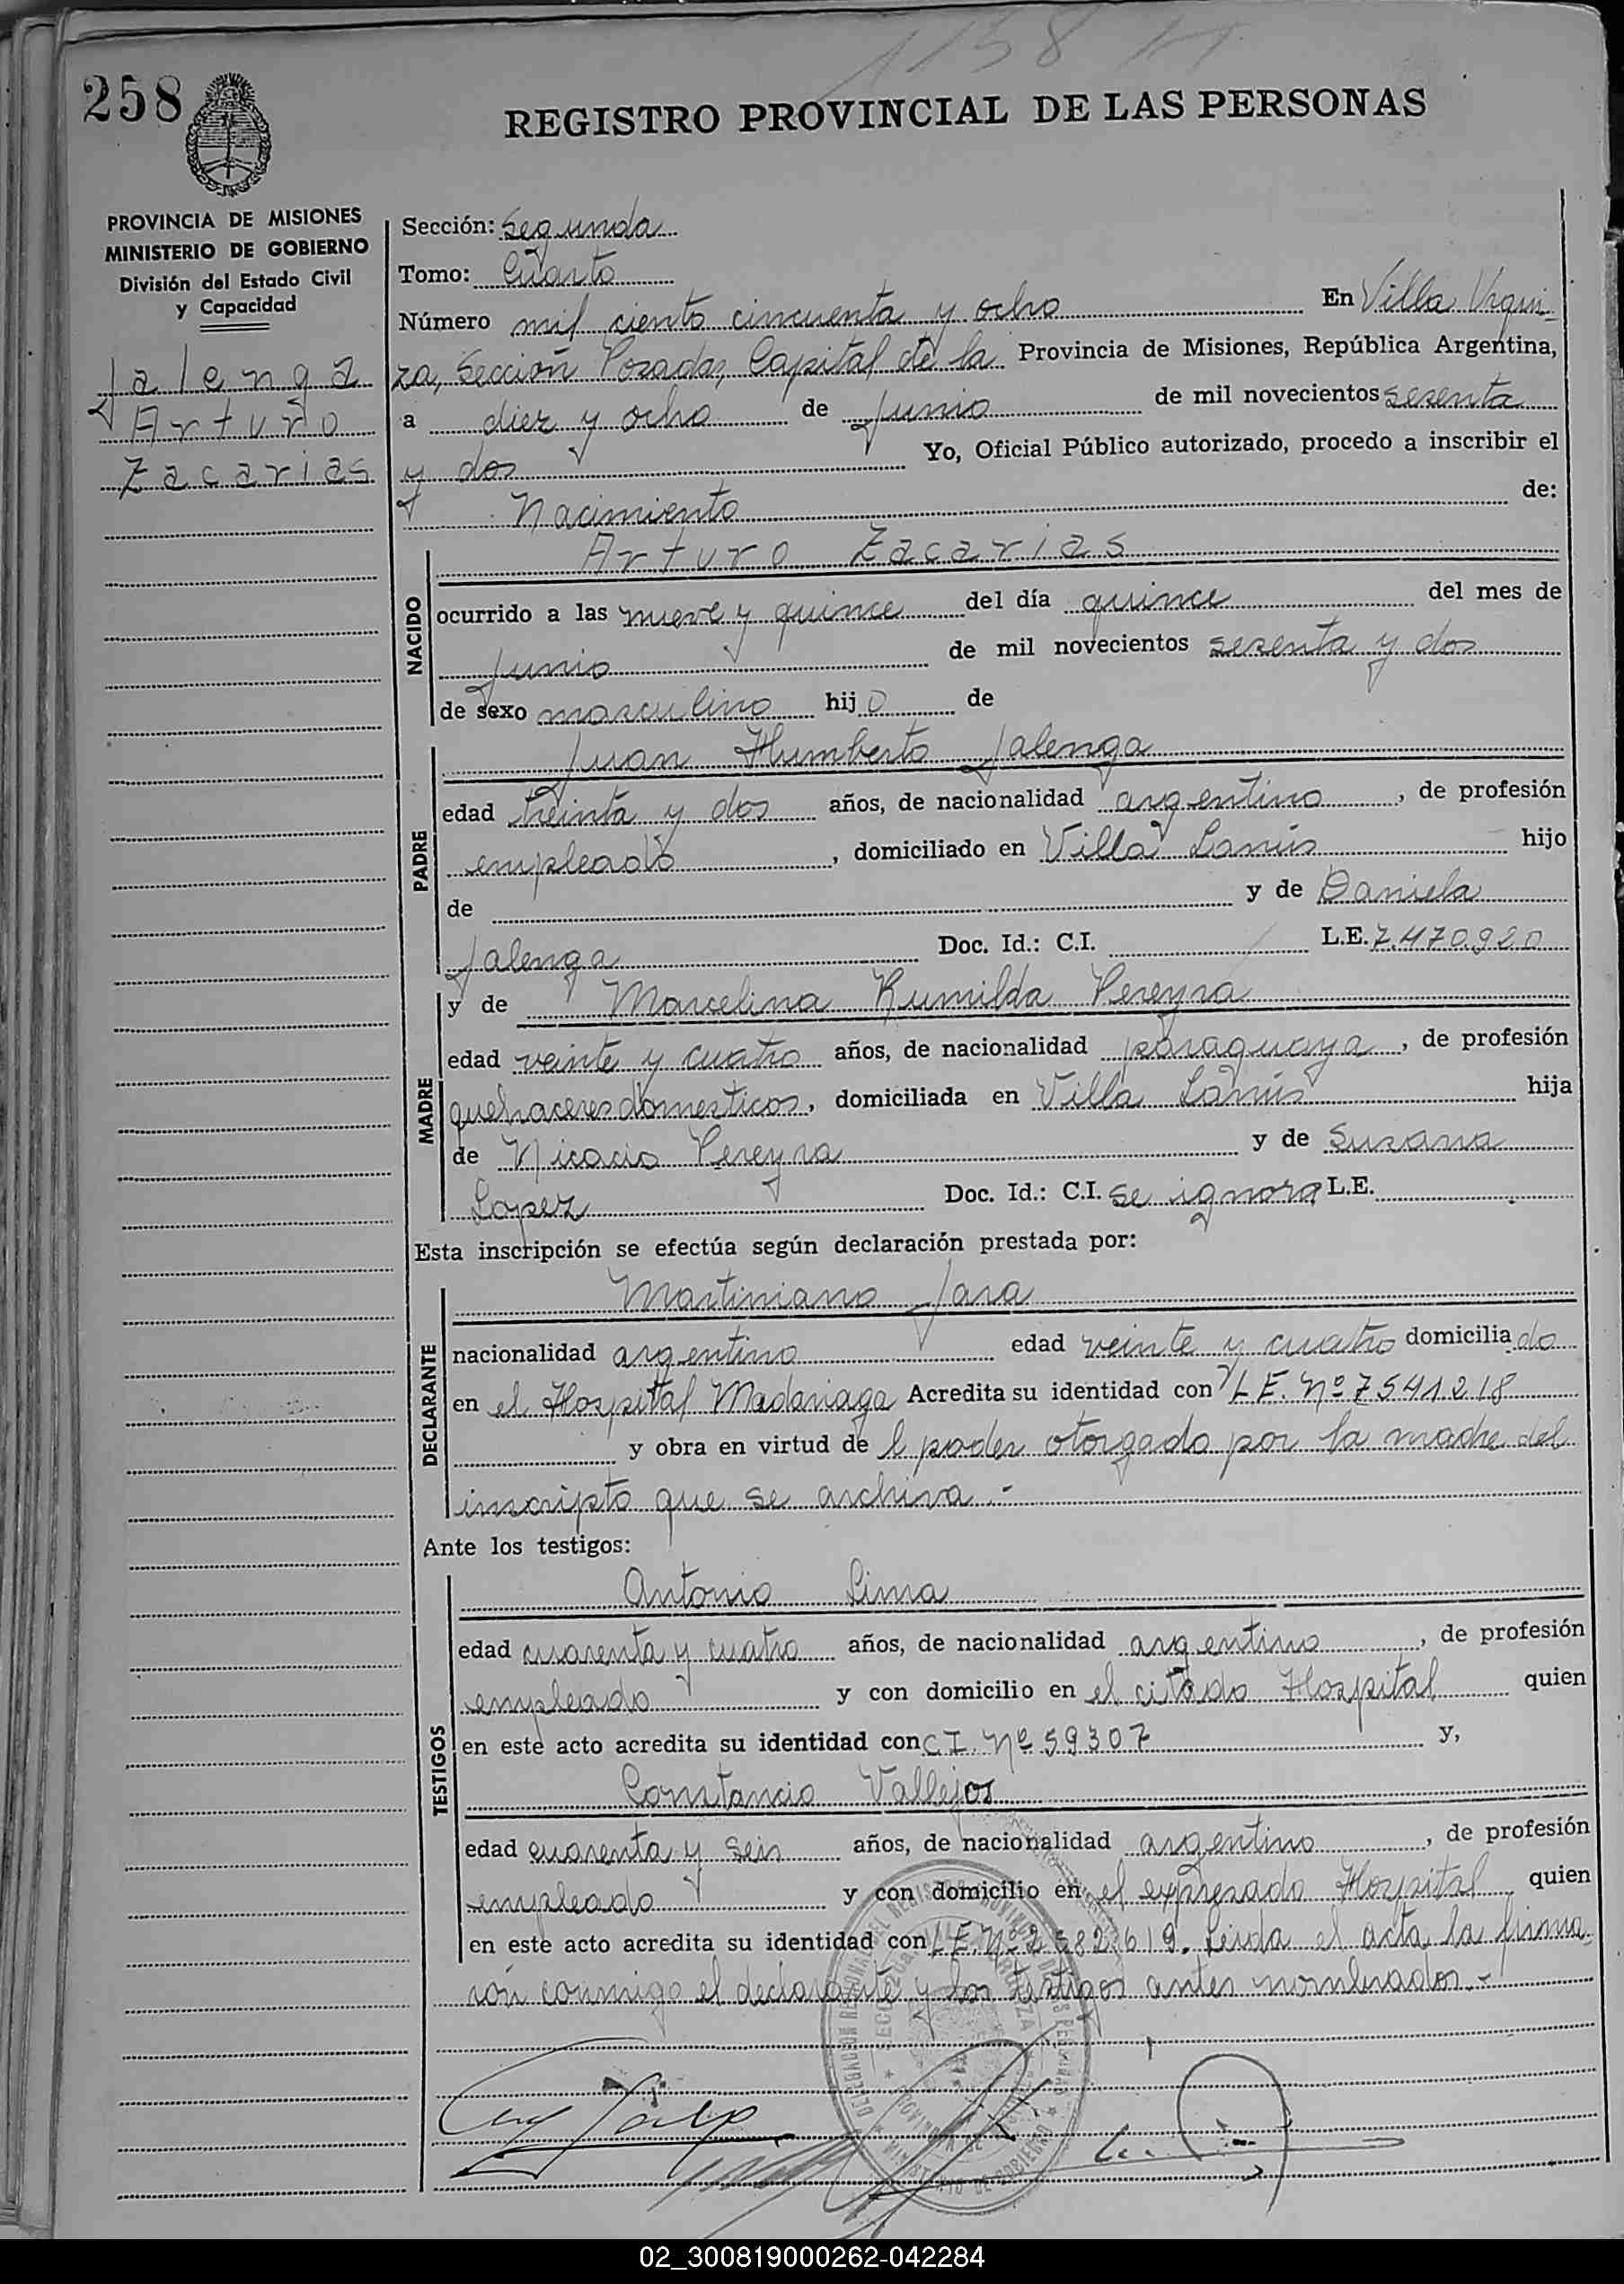 1158
258
REGISTRO PROVINCIAL DE LAS PERSONAS
PROVINCIA DE MISIONES
MINISTERIO DE GOBIERNO
División del Estado Civil
y Capacidad
Jalenga
Arturo
Zacarias
Sección: Segunda
Tomo: Cuarto
Número mil ciento cincuenta y ocho En Villa Urqui-
za, Sección Posadas, Capital de la Provincia de Misiones, República Argentina,
a diez y ocho de Junio de mil novecientos sesenta
y dos Yo, Oficial Público autorizado, procedo a inscribir el
Nacimiento de:
NACIDO
Arturo Zacarias
ocurrido a las nueve y quince del día quince del mes de
Junio de mil novecientos sesenta y dos
de sexo masculino hijo de
PADRE
Juan Humberto Jalenga
edad treinta y dos años, de nacionalidad argentino, de profesión
empleado, domiciliado en Villa Lanús hijo
de y de Daniela
Jalenga Doc. Id.: C.I. L.E. 7.470.920
MADRE
y de Marcelina Rumilda Pereyra
edad veinte y cuatro años, de nacionalidad paraguaya, de profesión
quehaceres domesticos, domiciliada en Villa Lanús hija
de Nicacio Pereyra y de Susana
Lopez Doc. Id.: C.I. se ignora L.E.
Esta inscripción se efectúa según declaración prestada por:
DECLARANTE
Martiniano Jara
nacionalidad argentino edad veinte y cuatro domiciliado
en el Hospital Madariaga Acredita su identidad con L E. Nº 7541218
y obra en virtud de l poder otorgado por la madre del
inscripto que se archiva.-
Ante los testigos:
TESTIGOS
Antonio Lima
edad cuarenta y cuatro años, de nacionalidad argentino, de profesión
empleado y con domicilio en el citado Hospital quien
en este acto acredita su identidad con C I. Nº 59307 y,
Constancio Vallejos
edad cuarenta y seis años, de nacionalidad argentino, de profesión
empleado y con domicilio en el expresado Hospital quien
en este acto acredita su identidad con L E. Nº 2582619. Leida el acta, la firma-
rón conmigo el declarante y los testigos antes nombrados.-
02_300819000262-042284